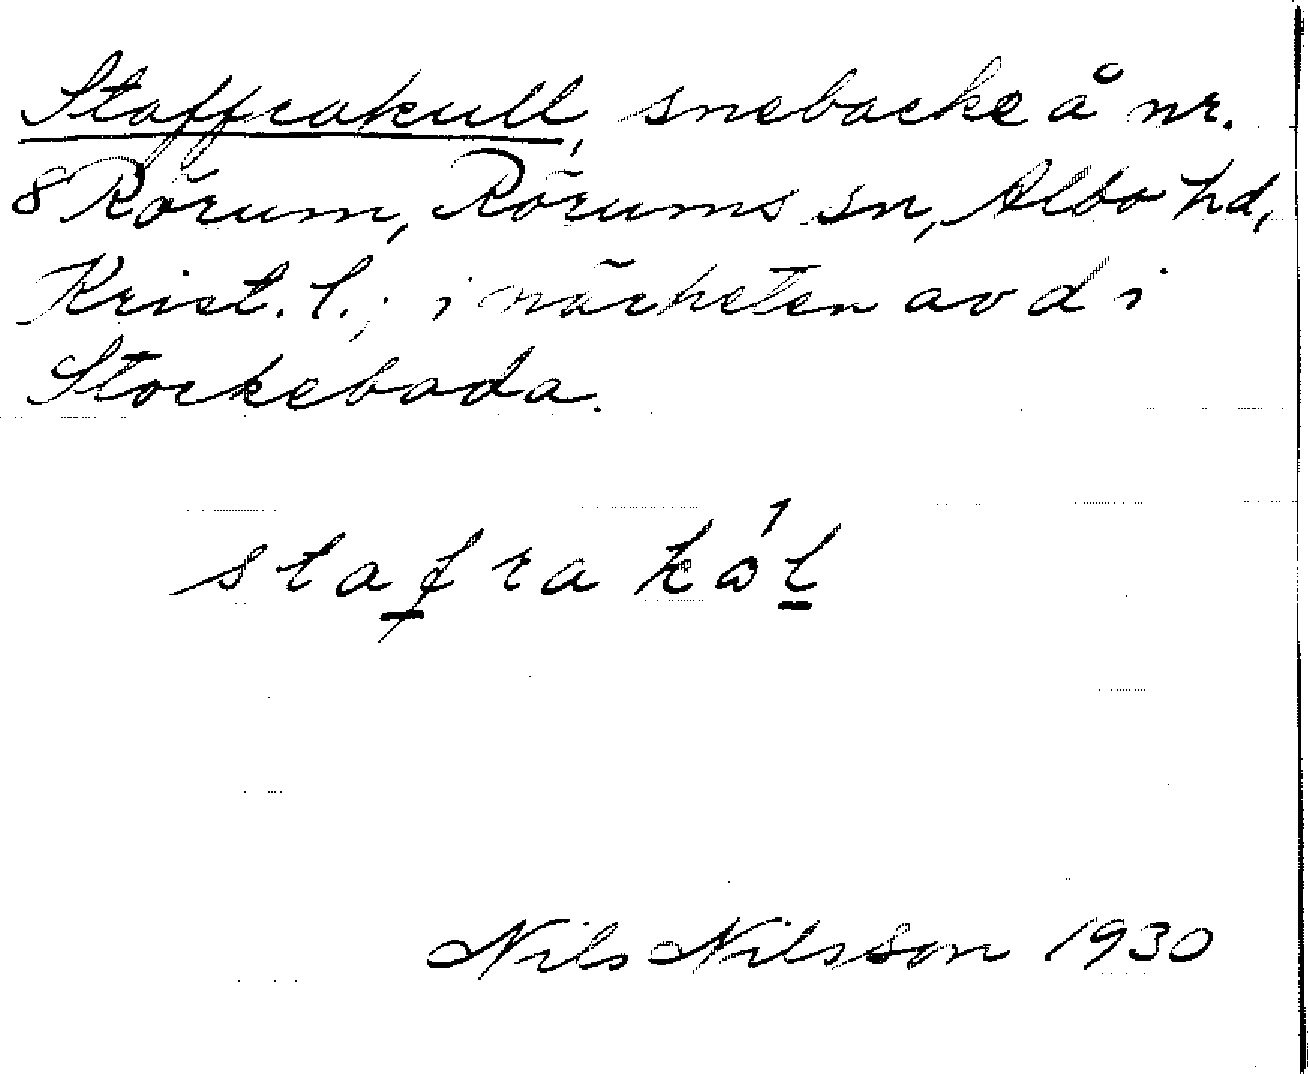 Staffrakull, snebacke å nr.
8 Rörum, Rörums sn, Albo hd,
Krist. l.; i närheten av d i
Stockebada.
stafra kål
Nils Nilsson 1930